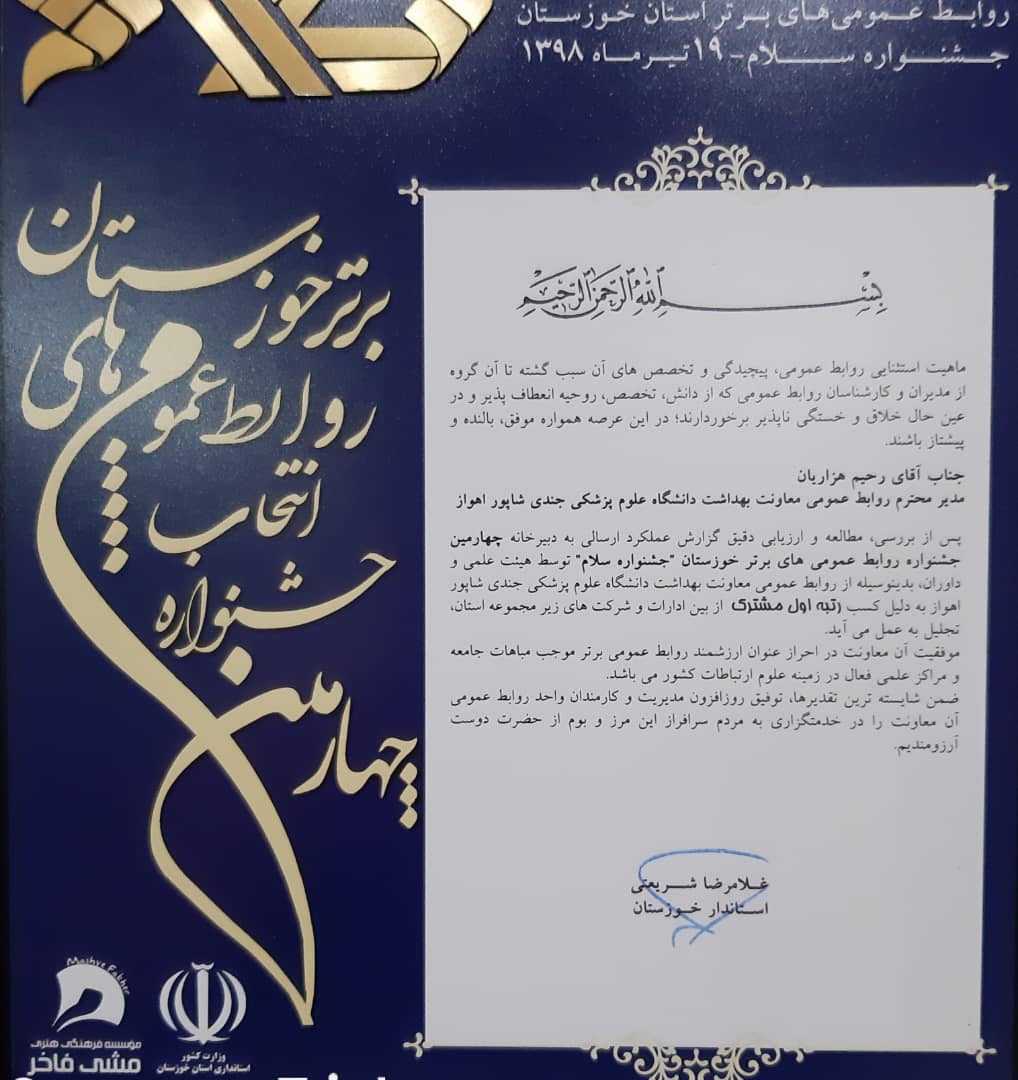 روابط عمومی‌های برتر استان خوزستان
جشنواره سلام - ۱۹ تیر ماه ۱۳۹۸
چهارمین
جشنواره
انتخاب
روابط عمومی های
برتر خوزستان
بسم الله الرحمن الرحیم
ماهیت استثنایی روابط عمومی، پیچیدگی و تخصص های آن سبب گشته تا آن گروه
از مدیران و کارشناسان روابط عمومی که از دانش، تخصص، روحیه انعطاف پذیر و در
عین حال خلاق و خستگی ناپذیر برخوردارند؛ در این عرصه همواره موفق، بالنده و
پیشتاز باشند.
جناب آقای رحیم هزاریان
مدیر محترم روابط عمومی معاونت بهداشت دانشگاه علوم پزشکی جندی شاپور اهواز
پس از بررسی، مطالعه و ارزیابی دقیق گزارش عملکرد ارسالی به دبیرخانه چهارمین
جشنواره روابط عمومی های برتر خوزستان "جشنواره سلام" توسط هیئت علمی و
داوران، بدینوسیله از روابط عمومی معاونت بهداشت دانشگاه علوم پزشکی جندی شاپور
اهواز به دلیل کسب رتبه اول مشترک از بین ادارات و شرکت های زیر مجموعه استان،
تجلیل به عمل می آید.
موفقیت آن معاونت در احراز عنوان ارزشمند روابط عمومی برتر موجب مباهات جامعه
و مراکز علمی فعال در زمینه علوم ارتباطات کشور می باشد.
ضمن شایسته ترین تقدیرها، توفیق روزافزون مدیریت و کارمندان واحد روابط عمومی
آن معاونت را در خدمتگزاری به مردم سرافراز این مرز و بوم از حضرت دوست
آرزومندیم.
غلامرضا شریعتی
استاندار خوزستان
Mashye Fakher
مؤسسه فرهنگی هنری
مشی فاخر
وزارت کشور
استانداری استان خوزستان